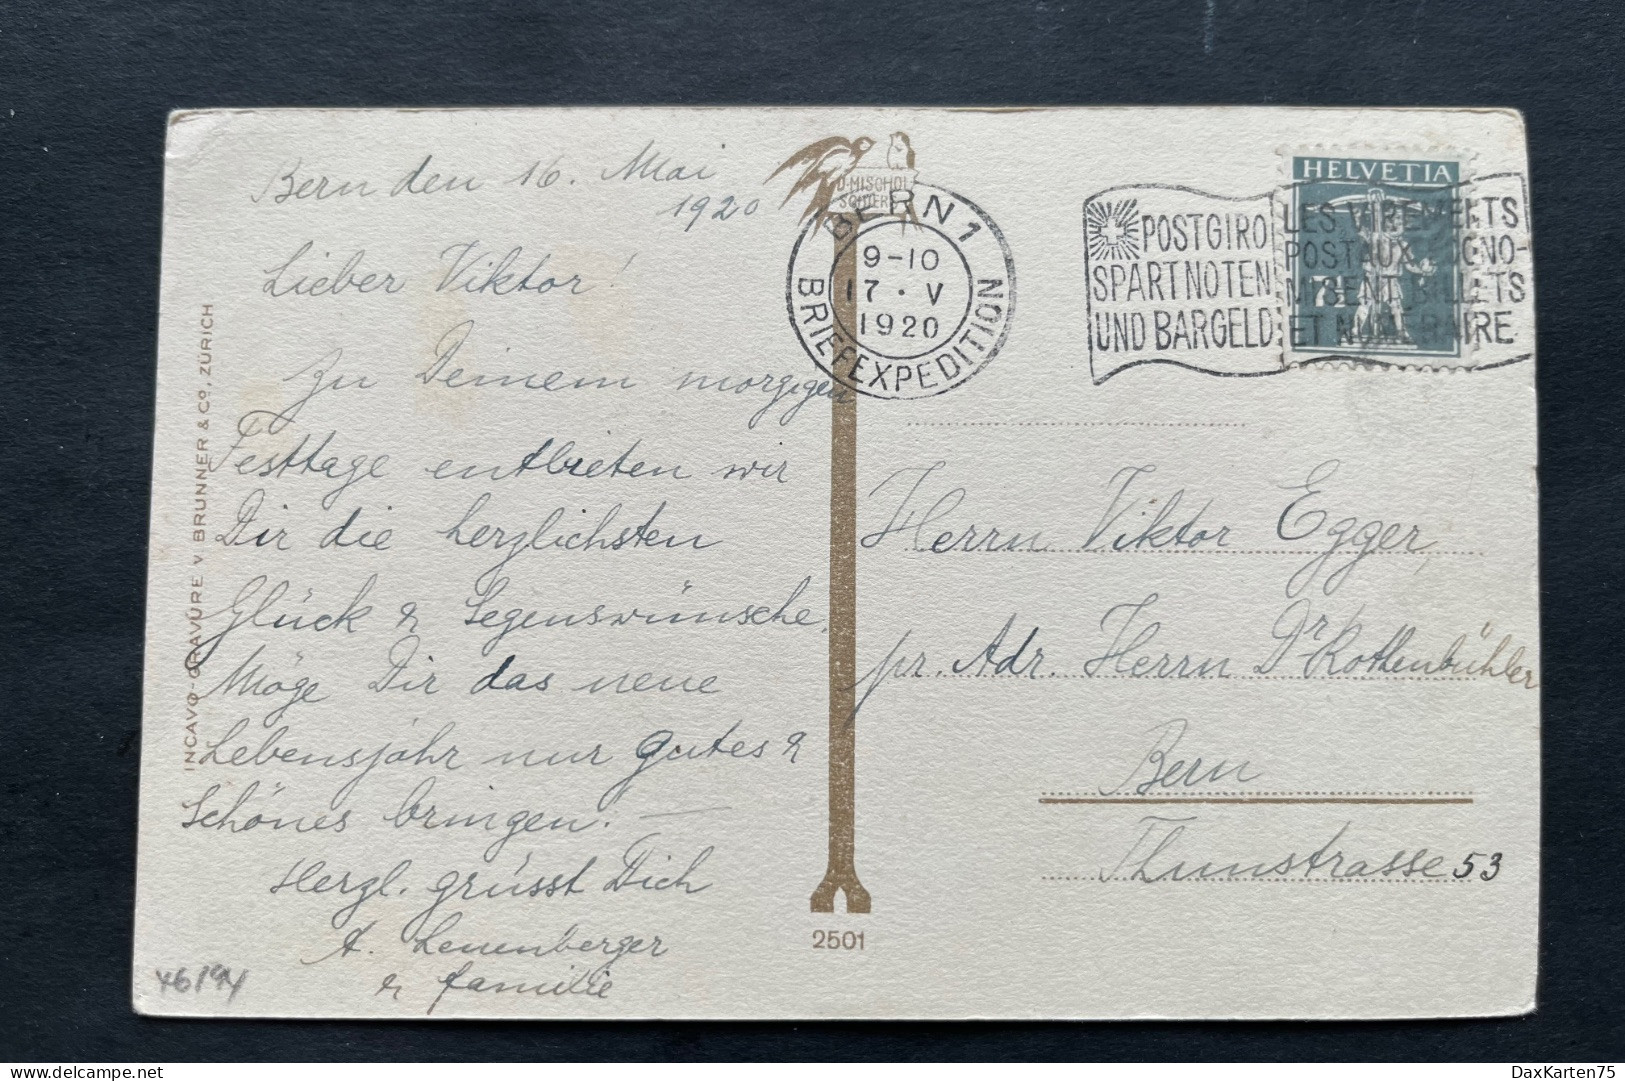 Bern den 16. Mai
1920
Lieber Viktor!
Zu Deinem morgigen
Festtage entbieten wir
Dir die herzlichsten
Glück & Segenswünsche.
Möge Dir das neue
Lebensjahr nur gutes &
Schönes bringen. —
Herzl. grüsst Dich
A. Leuenberger
& Familie
46194
INCAVO-GRAVÜRE V BRUNNER & Co., ZÜRICH
D. MISCHOL
SCHIERS
2501
BERN 1
9-10
17 · V
1920
BRIEFEXPEDITION
POSTGIRO
SPART NOTEN
UND BARGELD
LES VIREMENTS
POSTAUX ECONO-
MISENT BILLETS
ET NUMERAIRE
HELVETIA
7½
Herrn Viktor Egger,
pr. Adr. Herrn Dr Rothenbühler
Bern
Thunstrasse 53
DaxKarten75
delcampe.net